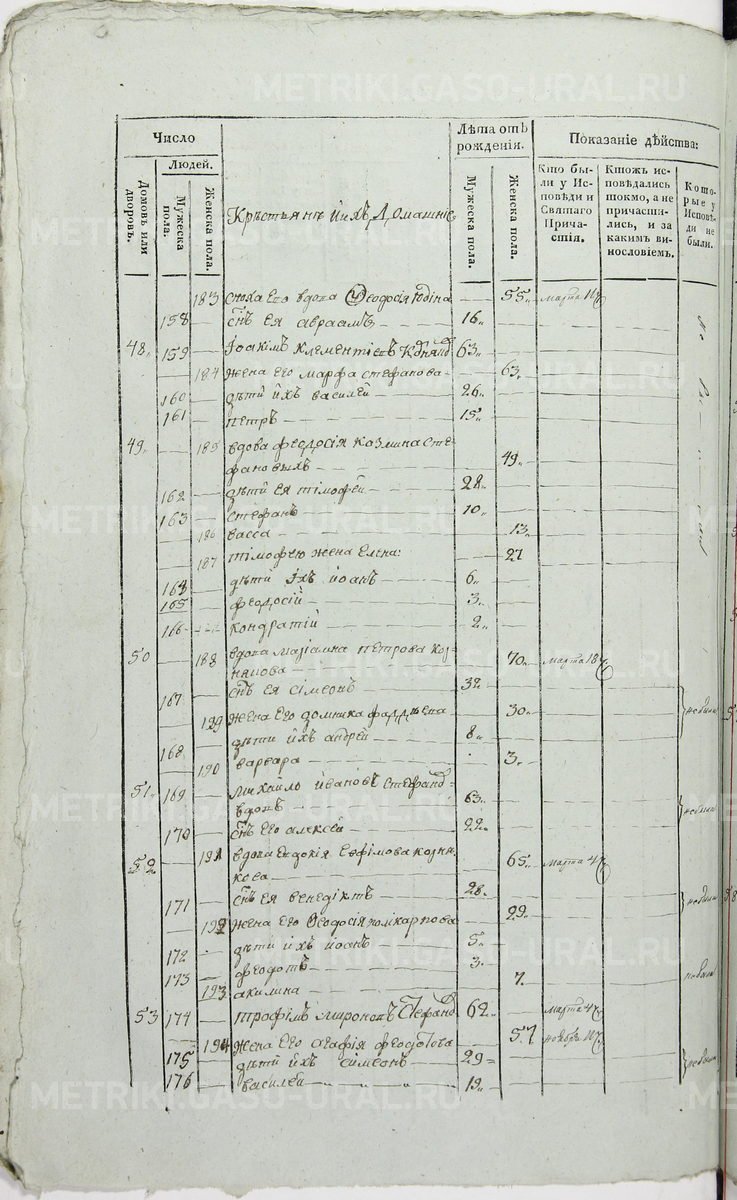 METRIKI.GASO-URAL.RU
Число
Людей.
Домовъ или дворовъ.
Мужеска пола.
Женска пола.
Крестьяне и ихъ Домашніе
Лѣта отъ рожденія.
Мужеска пола.
Женска пола.
Показаніе дѣйства:
Кто были у Исповѣди и Святаго Причастія.
Ктожъ исповѣдались токмо, а не причастились, и за какимъ винословіемъ.
Которые у Исповѣди не были.
183 сноха Его вдова Ѳеодосія Юдина 55 марта
158 снъ Ея авраамъ 16
48 159 Іоакімъ Клементіевъ 63
184 жена Его марфа стефанова 63
160 дѣти ихъ василей 26
161 петръ 15
49 185 вдова феодосія козмина Сте-
фановыхъ 49
162 дѣти ея тімофей 28
163 стефанъ 10
186 васса 13
187 тімофею жена Елена: 27
164 дѣти Ихъ иоанъ 6
165 феодосій 3
166 кондратій 2
50 188 вдова маріамна петрова коз-
някова 70 марта 18
167 снъ ея сімеонъ 32
189 жена Его домника фаддѣева 30 небыли
168 дѣти ихъ андрей 8
190 варвара 3
51 169 михайло ивановъ Стефано-
вдовъ 63 небыли
170 снъ Его алексей 22
52 191 вдова Евдокія Ефімова козня-
кова 65 марта 4
171 снъ ея венедіктъ 28 небыли
192 жена Его Ѳеодосія поликарпова 29
172 дѣти ихъ иоанъ 5
173 феодотъ 3 небыли
193 акилина 7
53 174 трофімъ міроновъ Стефано 62 марта 4
194 жена Его агафія феодотова 57 ноября
175 дѣти ихъ симеонъ 29 небыли
176 василей 19